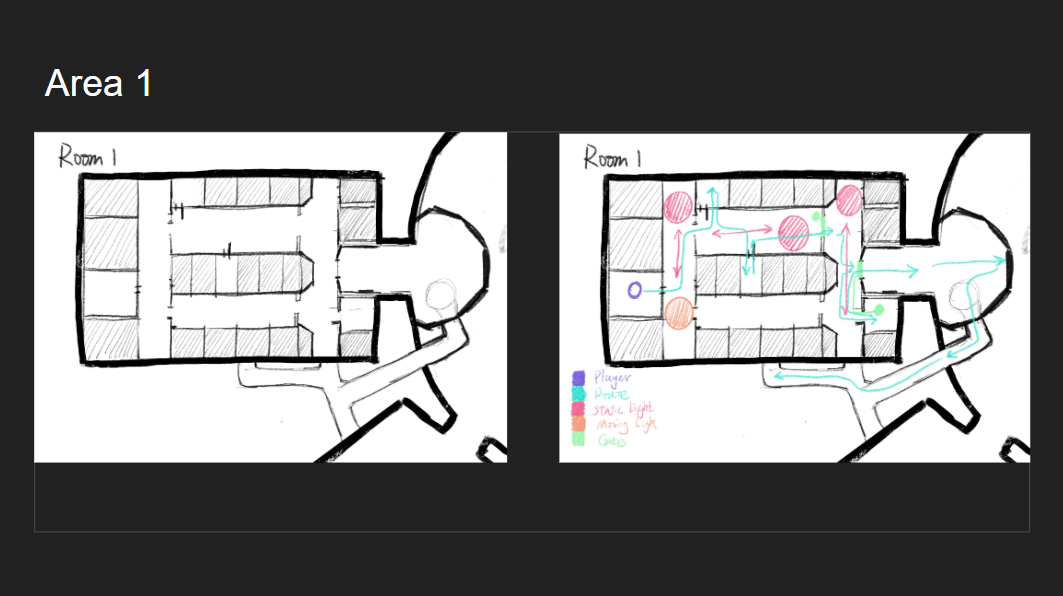 Area 1
Room 1
Room 1
Player
Route
Static Light
Moving Light
Gate